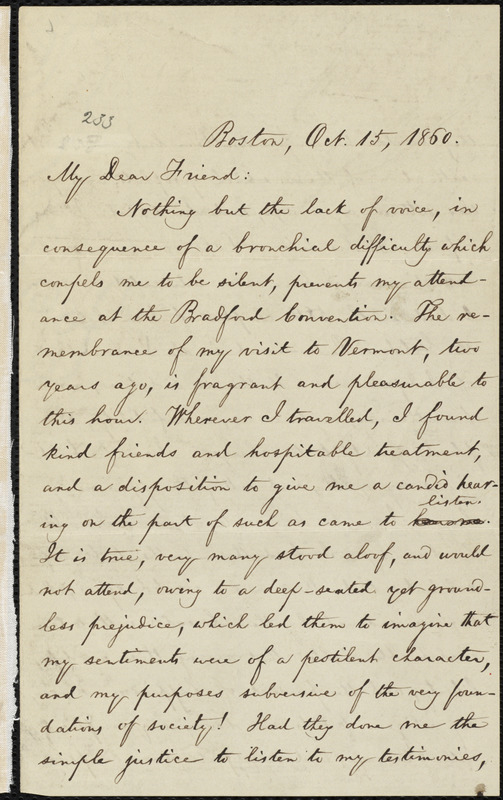 233
Boston, Oct. 15, 1860.
My Dear Friend:
Nothing but the lack of voice, in
consequence of a bronchial difficulty which
compels me to be silent, prevents my attend-
ance at the Bradford Convention. The re-
membrance of my visit to Vermont, two
years ago, is fragrant and pleasurable to
this hour. Wherever I travelled, I found
kind friends and hospitable treatment,
and a disposition to give me a candid hear-
listen.
ing on the part of such as came to hear me.
It is true, very many stood aloof, and would
not attend, owing to a deep-seated yet ground-
less prejudice, which led them to imagine that
my sentiments were of a pestilent character,
and my purposes subversive of the very foun-
dations of society! Had they done me the
simple justice to listen to my testimonies,